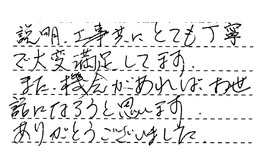 説明、工事共にとても丁寧
で大変満足してます。
また、機会があれば、お世
話になろうと思います。
ありがとうございました。